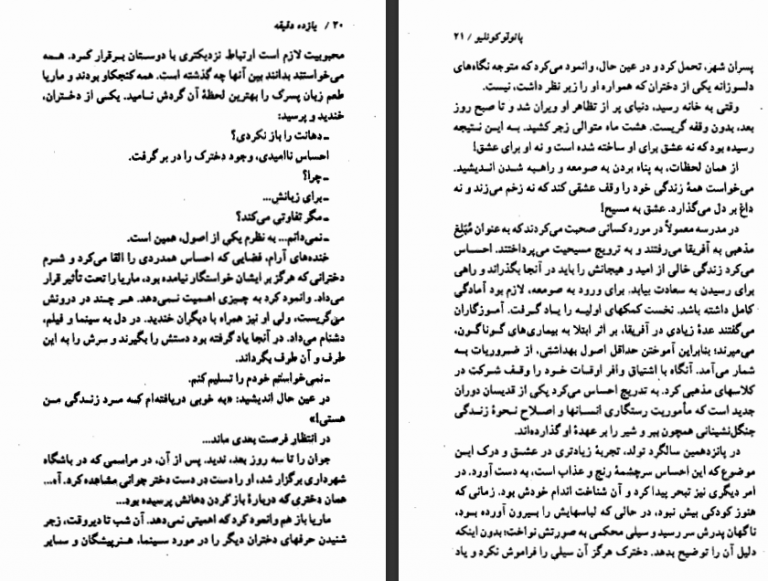 ۲۰ / یازده دقیقه
محبوبیت لازم است ارتباط نزدیکتری با دوستان برقرار کرد. همه
می‌خواستند بدانند بین آنها چه گذشته است. همه کنجکاو بودند و ماریا
طعم زبان پسرک را بهترین لحظهٔ آن گردش نامید. یکی از دختران،
خندید و پرسید:
ـ دهانت را باز نکردی؟
احساس ناامیدی، وجود دخترک را در بر گرفت.
ـ چرا؟
ـ برای زبانش...
ـ مگر تفاوتی می‌کند؟
ـ نمی‌دانم... به نظرم یکی از اصول، همین است.
خنده‌های آرام، فضایی که احساس همدردی را القا می‌کرد و شرم
دخترانی که هرگز بر ایشان خواستگار نیامده بود، ماریا را تحت تأثیر قرار
می‌داد. وانمود کرد به چیزی اهمیت نمی‌دهد. هر چند در درونش
می‌گریست، ولی او نیز همراه با دیگران خندید. در دل به سینما و فیلم،
دشنام می‌داد. در آنجا یاد گرفته بود دستش را بگیرند و سرش را به این
طرف و آن طرف بگرداند.
ـ نمی‌خواستم خودم را تسلیم کنم.
در عین حال اندیشید: «به خوبی دریافته‌ام که مرد زندگی من
هستی!»
در انتظار فرصت بعدی ماند...
جوان را تا سه روز بعد، ندید. پس از آن، در مراسمی که در باشگاه
شهرداری برگزار شد، او را دست در دست دختر جوانی مشاهده کرد. آه...
همان دختری که دربارهٔ باز کردن دهانش پرسیده بود...
ماریا باز هم وانمود کرد که اهمیتی نمی‌دهد. آن شب تا دیروقت، زجر
شنیدن حرفهای دختران دیگر را در مورد سینما، هنرپیشگان و سایر
پائولو کوئلیو / ۲۱
پسران شهر، تحمل کرد و در عین حال، وانمود می‌کرد که متوجه نگاه‌های
دلسوزانه یکی از دختران که همواره او را زیر نظر داشت، نیست.
وقتی به خانه رسید، دنیای پر از تظاهر او ویران شد و تا صبح روز
بعد، بدون وقفه گریست. هشت ماه متوالی زجر کشید. به این نتیجه
رسیده بود که نه عشق برای او ساخته شده است و نه او برای عشق!
از همان لحظات، به پناه بردن به صومعه و راهبه شدن اندیشید.
می‌خواست همهٔ زندگی خود را وقف عشقی کند که نه زخم می‌زند و نه
داغ بر دل می‌گذارد. عشق به مسیح!
در مدرسه معمولاً در مورد کسانی صحبت می‌کردند که به عنوان مُبلغ
مذهبی به آفریقا می‌رفتند و به ترویج مسیحیت می‌پرداختند. احساس
می‌کرد زندگی خالی از امید و هیجانش را باید در آنجا بگذراند و راهی
برای رسیدن به سعادت بیابد. برای ورود به صومعه، لازم بود آمادگی
کامل داشته باشد. نخست کمکهای اولیه را یاد گرفت. آموزگاران
می‌گفتند عدهٔ زیادی در آفریقا، بر اثر ابتلا به بیماری‌های گوناگون،
می‌میرند؛ بنابراین آموختن حداقل اصول بهداشتی، از ضروریات به
شمار می‌آمد. آنگاه با اشتیاق وافر اوقات خود را وقف شرکت در
کلاسهای مذهبی کرد. به تدریج احساس می‌کرد یکی از قدیسان دوران
جدید است که مأموریت رستگاری انسانها و اصلاح نحوهٔ زندگی
جنگل‌نشینانی همچون ببر و شیر را بر عهدهٔ او گذارده‌اند.
در پانزدهمین سالگرد تولد، تجربهٔ زیادتری در عشق و درک این
موضوع که این احساس سرچشمهٔ رنج و عذاب است، به دست آورد. در
امر دیگری نیز تبحر پیدا کرد و آن شناخت اندام خودش بود. زمانی که
هنوز کودکی بیش نبود، در حالی که لباسهایش را بیرون آورده بود،
ناگهان پدرش سر رسید و سیلی محکمی به صورتش نواخت؛ بدون اینکه
دلیل آن را توضیح بدهد. دخترک هرگز آن سیلی را فراموش نکرد و یاد